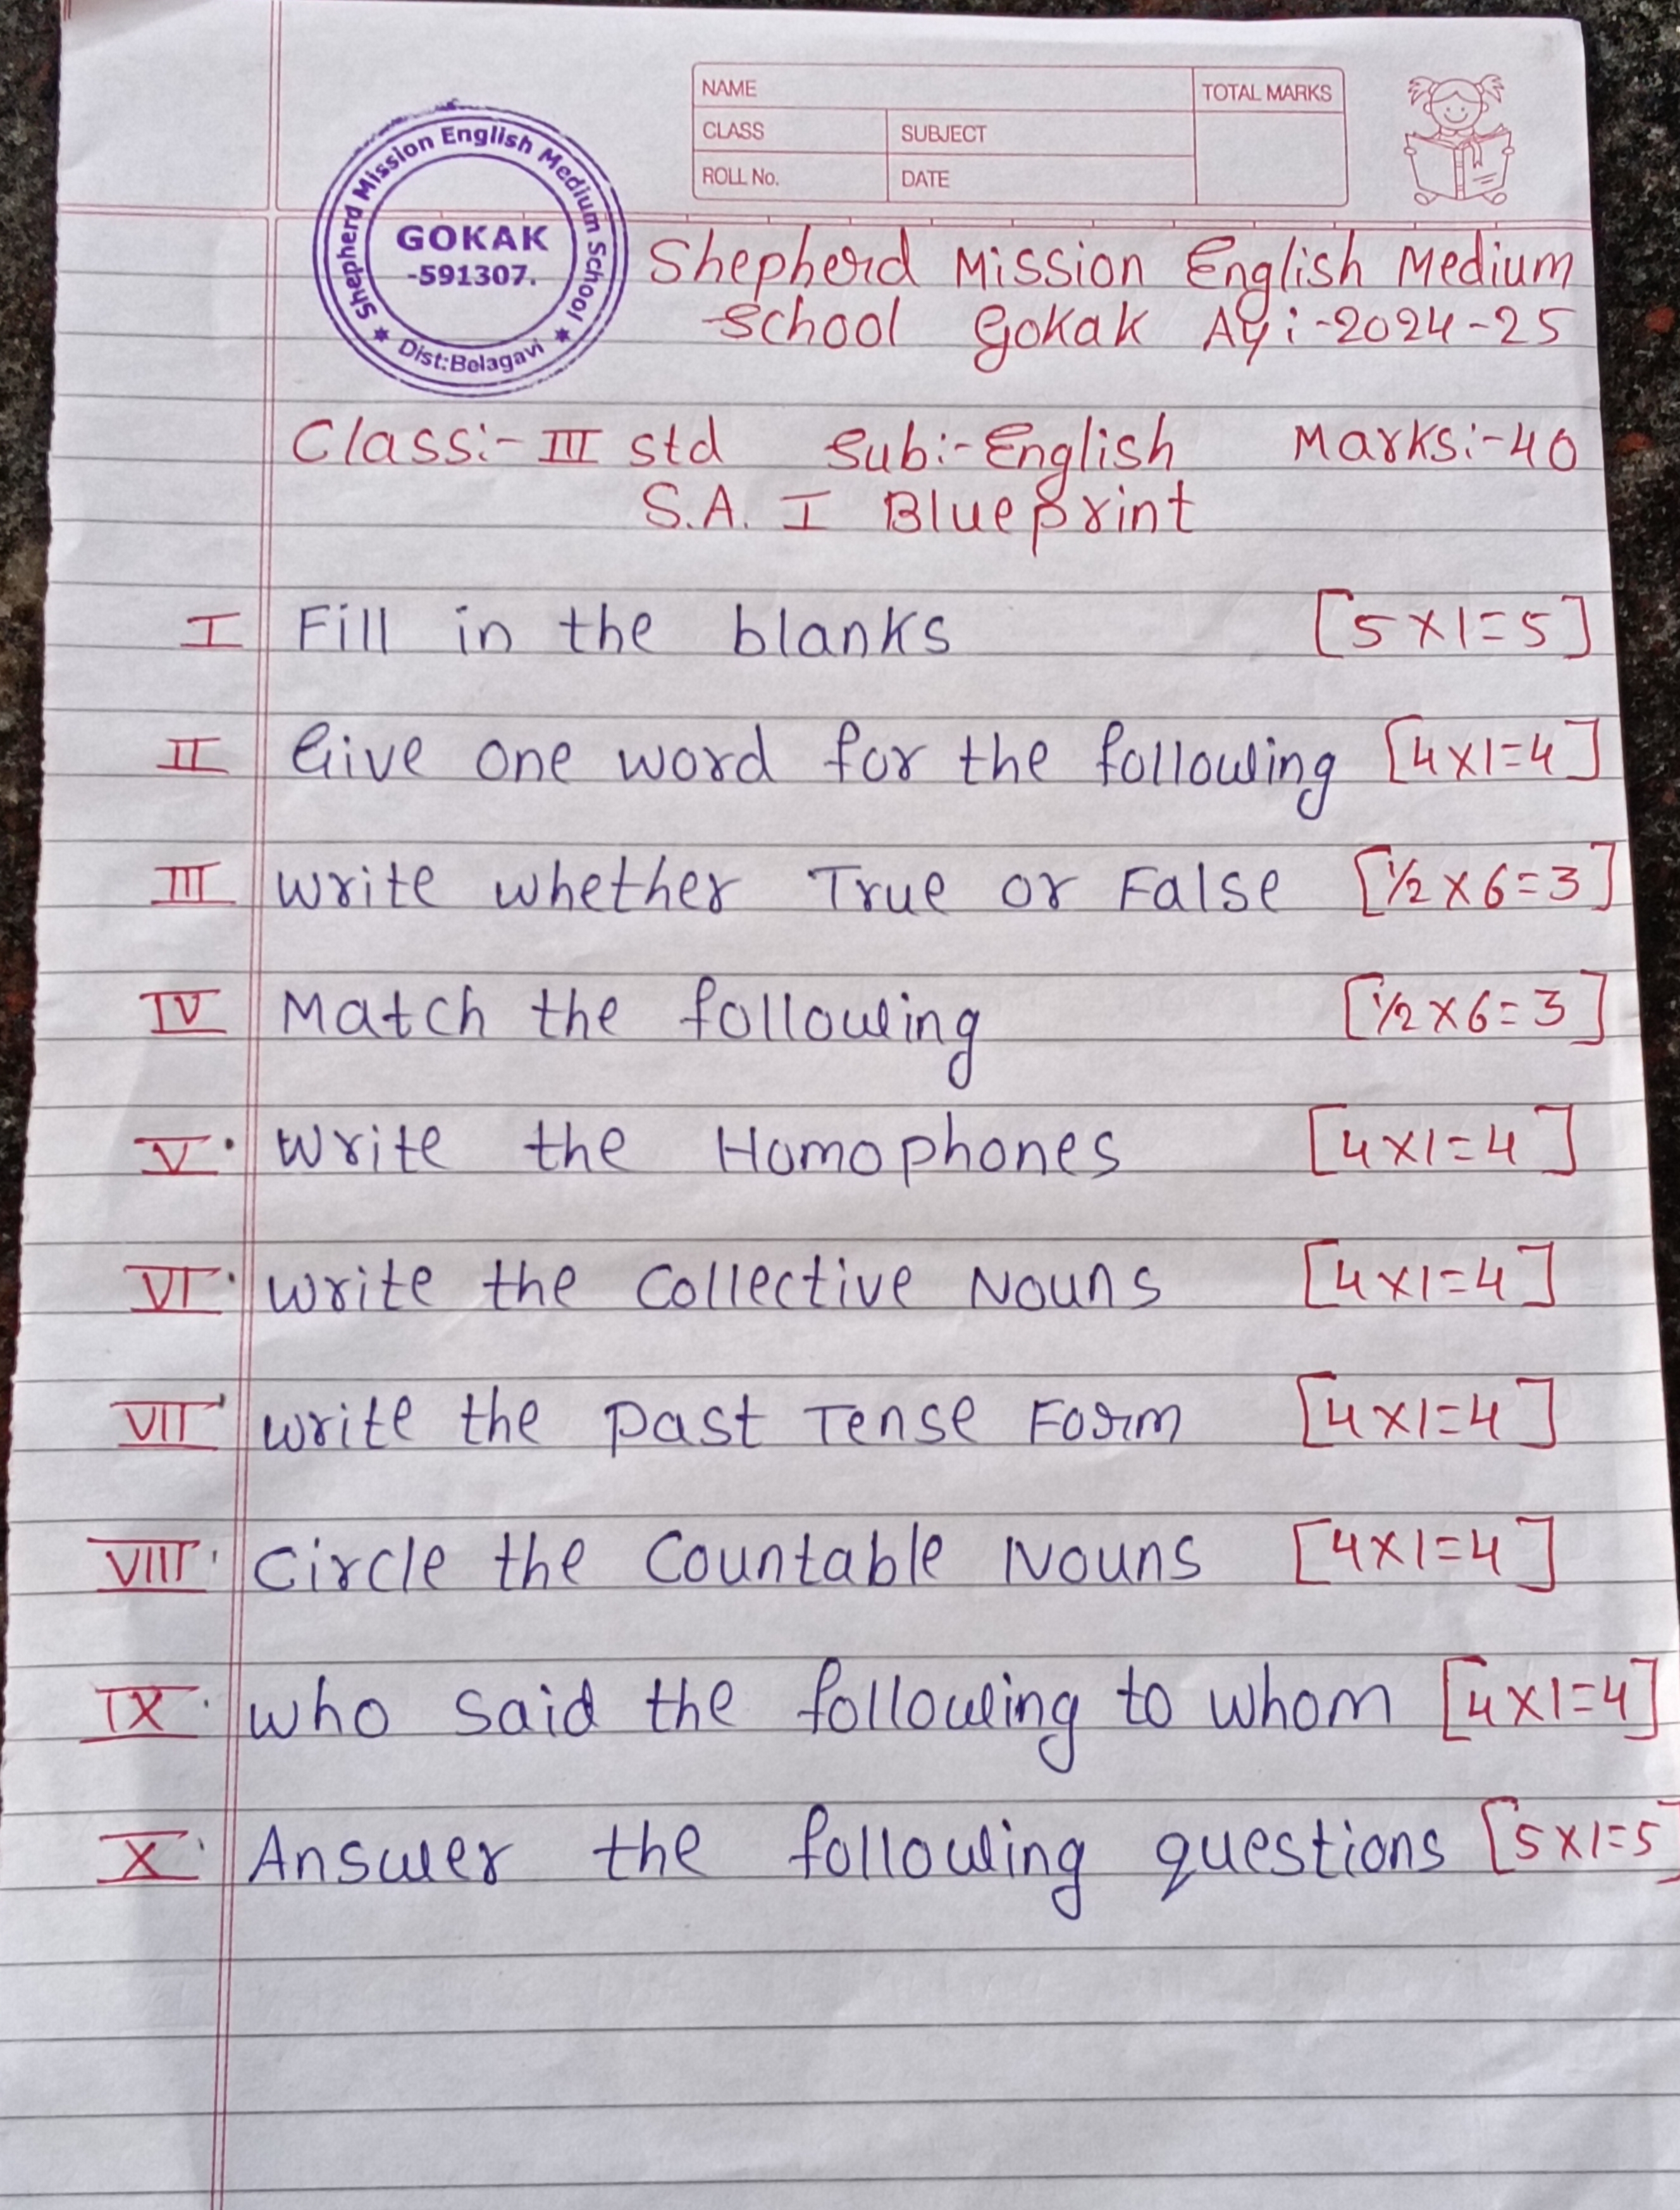 NAME
TOTAL MARKS
CLASS
SUBJECT
ROLL No.
DATE
Shepherd Mission English Medium School
GOKAK
-591307.
Dist:Belagavi
Shepherd Mission English Medium
School Gokak Ay:-2024-25
Class:- III std Sub:-English Marks:-40
S.A. I Blueprint
I Fill in the blanks [5×1=5]
II Give one word for the following [4×1=4]
III Write whether True or False [1/2×6=3]
IV Match the following [1/2×6=3]
V. Write the Homophones [4×1=4]
VI. Write the Collective Nouns [4×1=4]
VII. Write the Past Tense Form [4×1=4]
VIII. Circle the Countable Nouns [4×1=4]
IX. Who said the following to whom [4×1=4]
X. Answer the following questions [5×1=5]